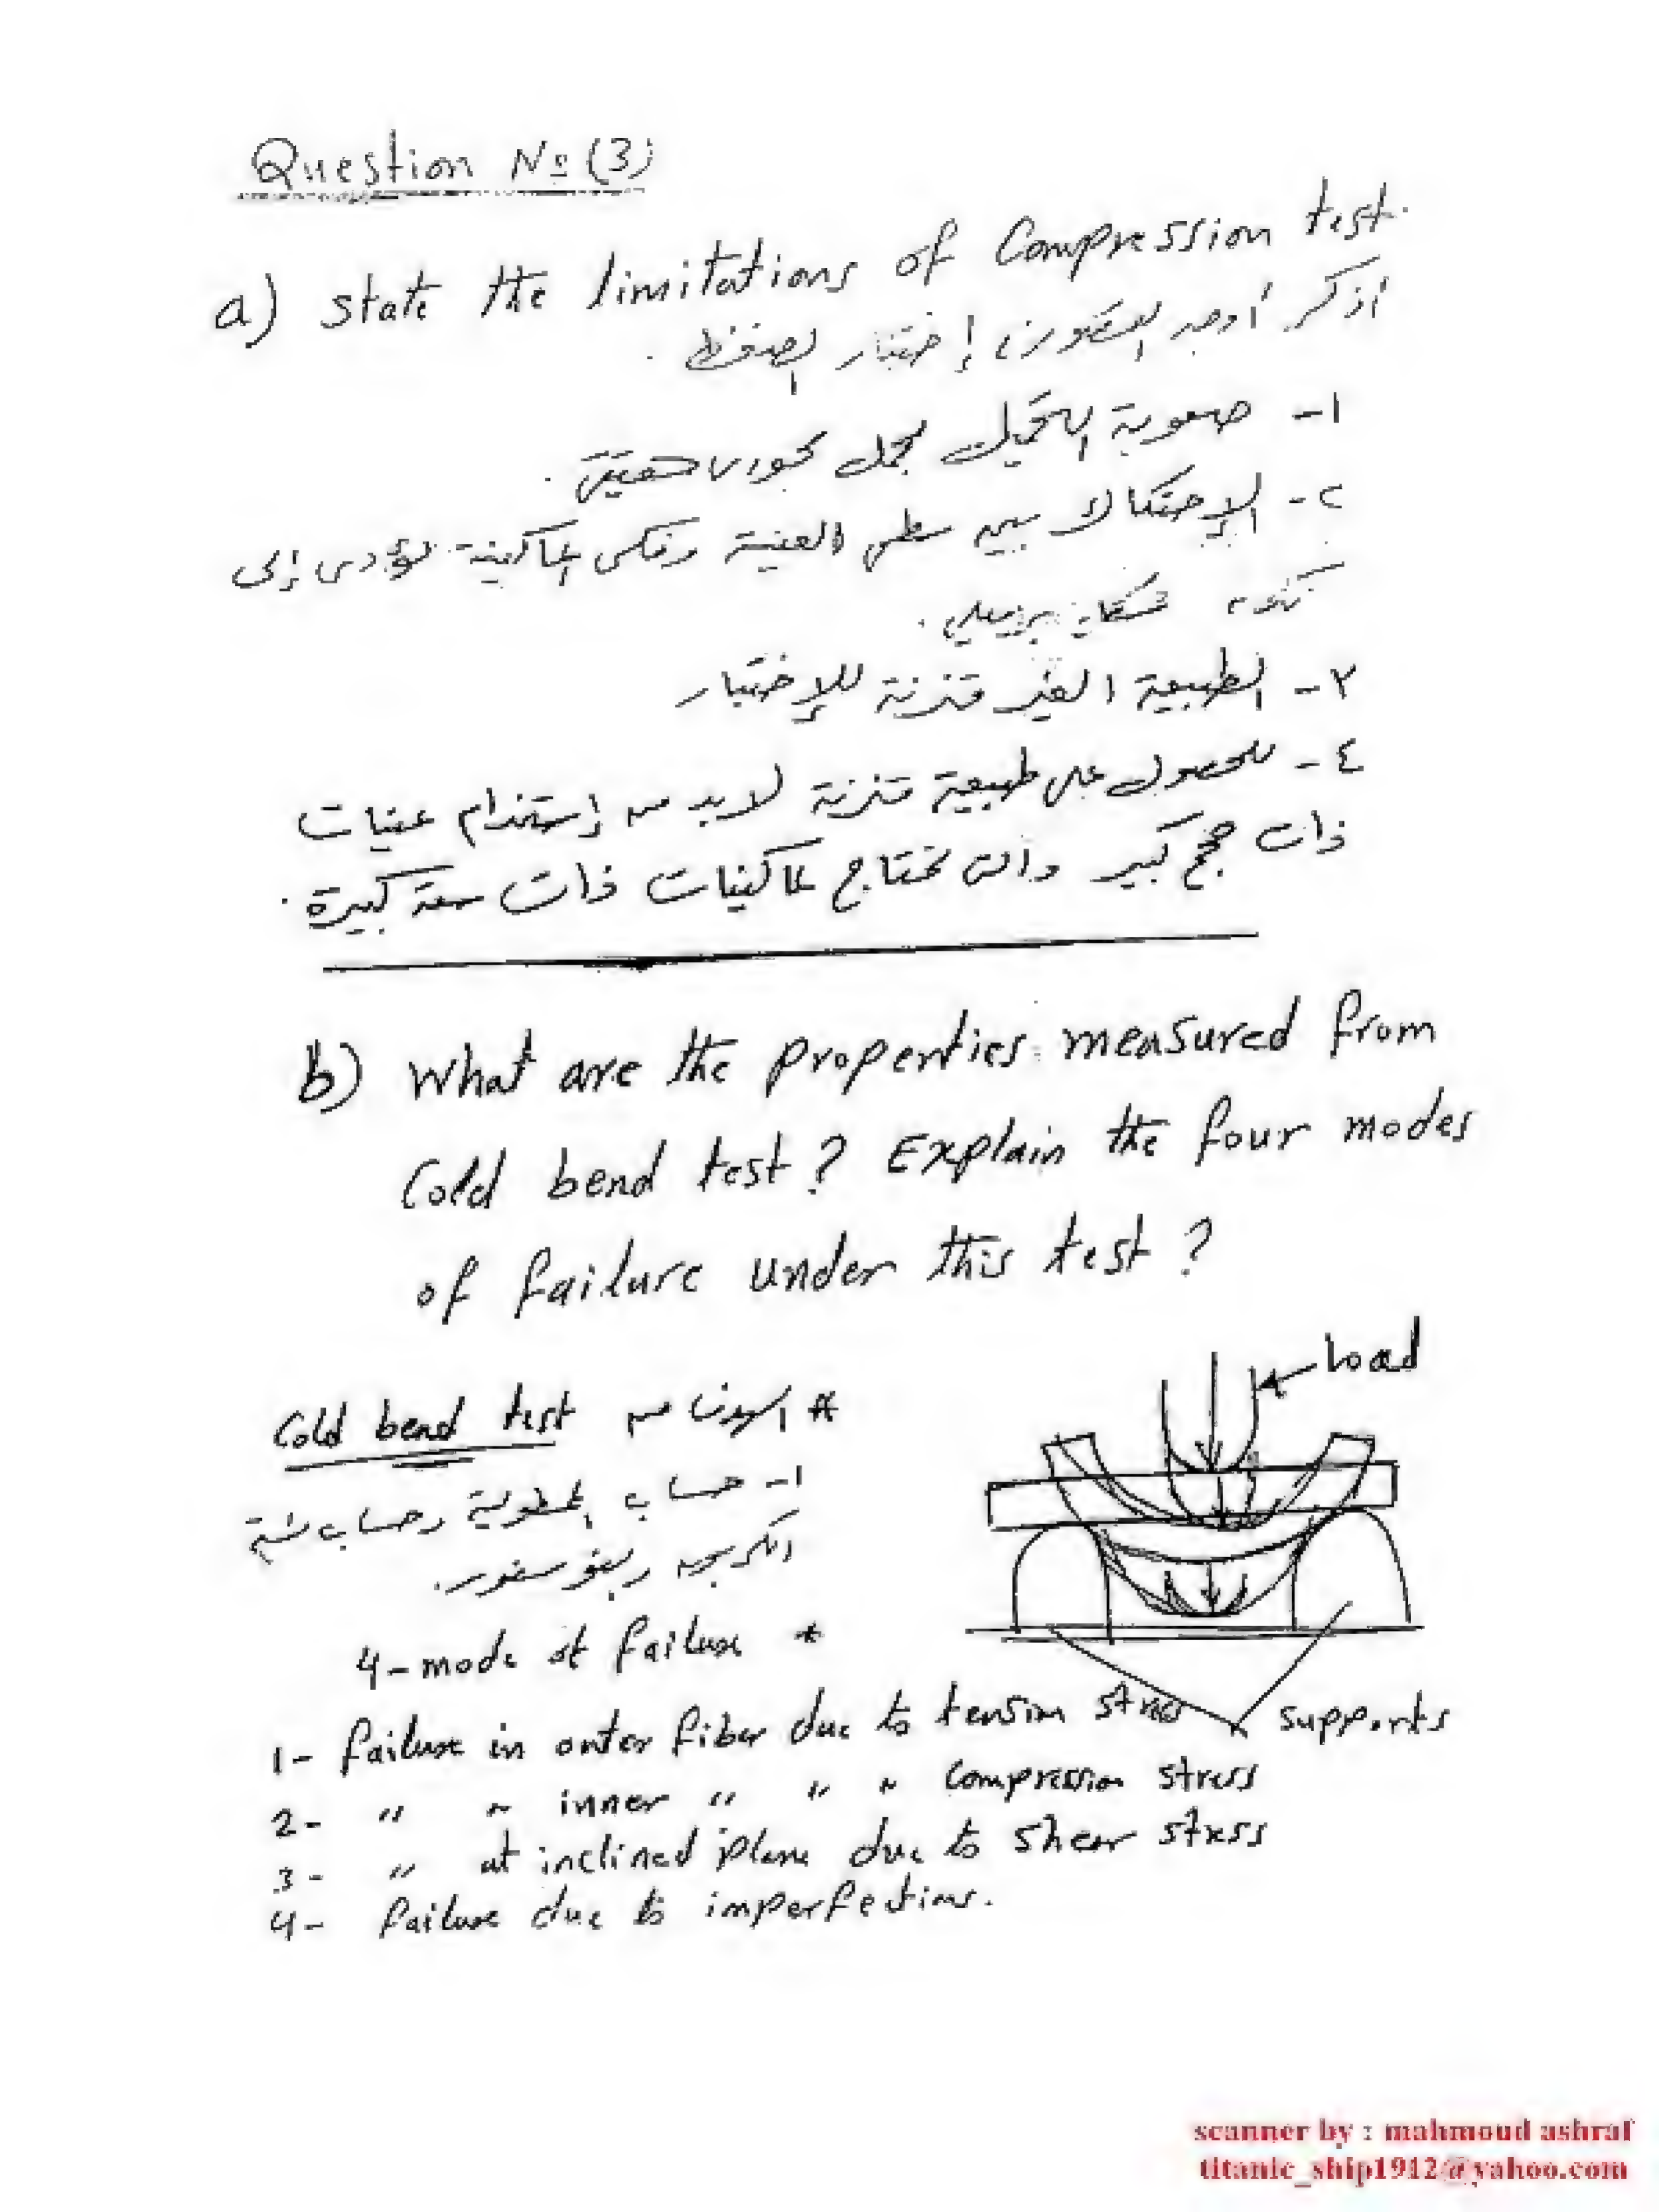 Question No (3)
a) state the limitations of Compression test.
أذكر أوجه القصور في إختبار الضغط .
١- صعوبة التحميل بحمل محورى حقيقى .
٢- الإحتكاك بين سطحى العينة وفكى الماكينة تؤدى إلى
تكون شكل برميلى .
٣- الطبيعة الغير متزنة للإختبار
٤- للحصول على طبيعة متزنة لابد من إستخدام عينات
ذات حجم كبير والتى تحتاج لماكينات ذات سعة كبيرة .
b) What are the properties measured from
Cold bend test? Explain the four modes
of failure under this test?
load
* الهدف من Cold bend test
١- حساب الممطولية وحساب نسبة
الكربون والفوسفور.
* 4-mode of failure
supports
1- failure in outer fiber due to tension stress
2- " " inner " " " Compression stress
3- " at inclined plane due to shear stress
4- failure due to imperfections.
scanner by : mahmoud ashraf
titanic_ship1912@yahoo.com